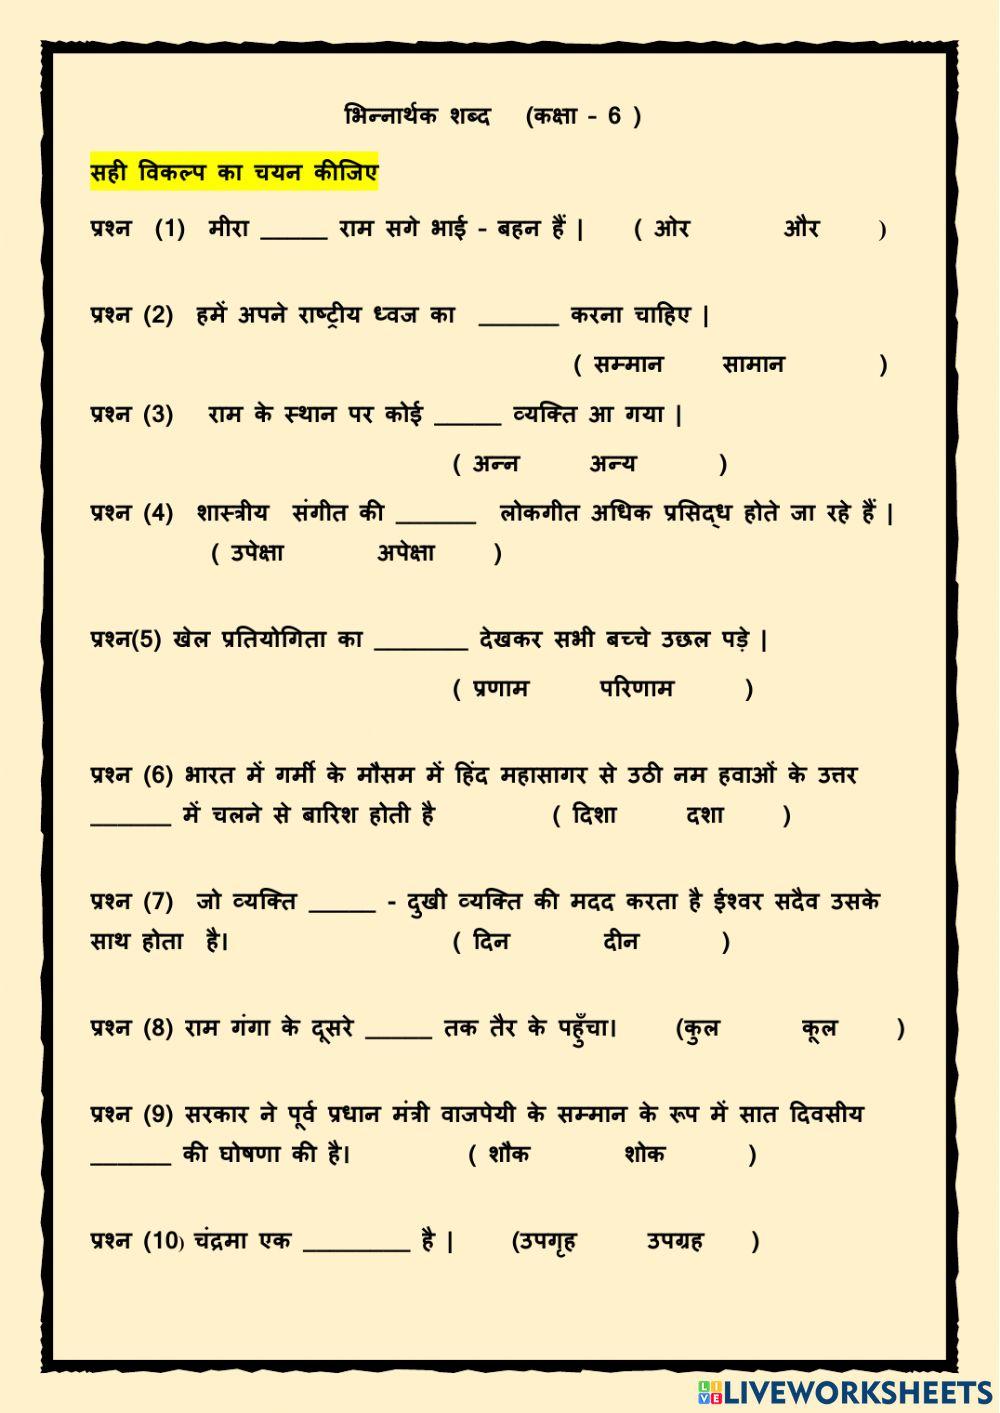 भिन्नार्थक शब्द (कक्षा - 6 )
सही विकल्प का चयन कीजिए
प्रश्न (1) मीरा _____ राम सगे भाई - बहन हैं | ( ओर और )
प्रश्न (2) हमें अपने राष्ट्रीय ध्वज का ______ करना चाहिए |
( सम्मान सामान )
प्रश्न (3) राम के स्थान पर कोई _____ व्यक्ति आ गया |
( अन्न अन्य )
प्रश्न (4) शास्त्रीय संगीत की ______ लोकगीत अधिक प्रसिद्ध होते जा रहे हैं |
( उपेक्षा अपेक्षा )
प्रश्न(5) खेल प्रतियोगिता का _______ देखकर सभी बच्चे उछल पड़े |
( प्रणाम परिणाम )
प्रश्न (6) भारत में गर्मी के मौसम में हिंद महासागर से उठी नम हवाओं के उत्तर
______ में चलने से बारिश होती है ( दिशा दशा )
प्रश्न (7) जो व्यक्ति _____ - दुखी व्यक्ति की मदद करता है ईश्वर सदैव उसके
साथ होता है। ( दिन दीन )
प्रश्न (8) राम गंगा के दूसरे _____ तक तैर के पहुँचा। (कुल कूल )
प्रश्न (9) सरकार ने पूर्व प्रधान मंत्री वाजपेयी के सम्मान के रूप में सात दिवसीय
______ की घोषणा की है। ( शौक शोक )
प्रश्न (10) चंद्रमा एक ________ है | (उपगृह उपग्रह )
LIVE LIVEWORKSHEETS